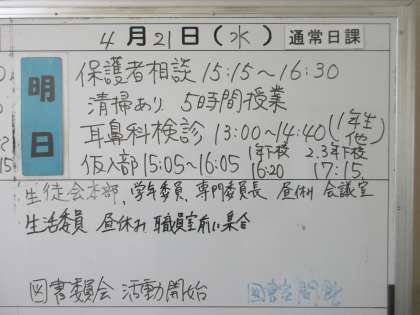 4月21日(水) 通常日課
明日
保護者相談 15:15～16:30
清掃あり 5時間授業
耳鼻科検診 13:00～14:40(1年生他)
仮入部 15:05～16:05 1年下校 16:20 2.3年下校 17:15
生徒会本部、学年委員、専門委員長 昼休み 会議室
生活委員 昼休み 職員室前に集合
図書委員会 活動開始